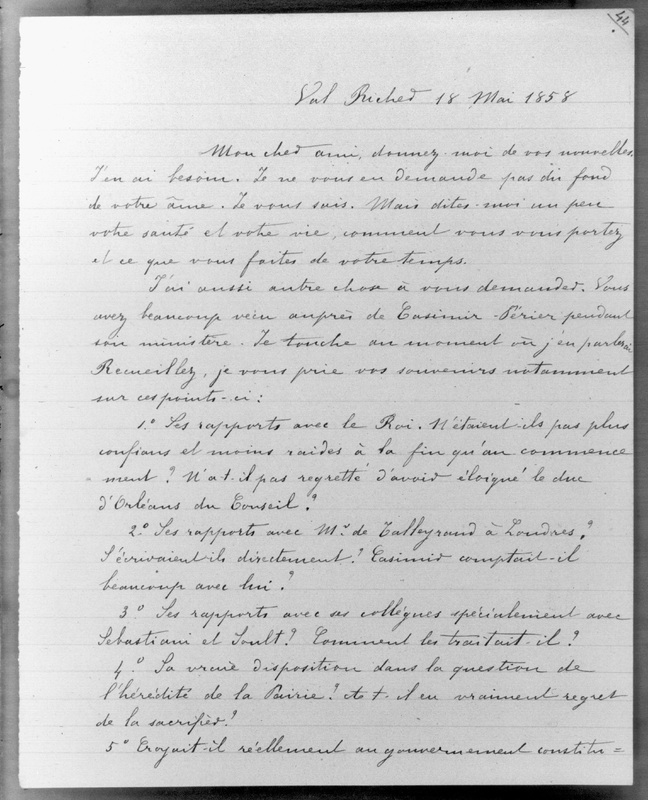 44
Val Richer 18 Mai 1858
Mon cher ami, donnez-moi de vos nouvelles.
J'en ai besoin. Je ne vous en demande pas du fond
de votre âme. Je vous sais. Mais dites-moi un peu
votre santé et votre vie, comment vous vous portez
et ce que vous faites de votre temps.
J'ai aussi autre chose à vous demander. Vous
avez beaucoup vécu auprès de Casimir-Périer pendant
son ministère. Je touche au moment où j'en parlerai
Recueillez, je vous prie vos souvenirs notamment
sur ces points-ci :
1.º Ses rapports avec le Roi. N'étaient-ils pas plus
confians et moins raides à la fin qu'au commence
ment ? N'a-t-il pas regretté d'avoir éloigné le duc
d'Orléans du Conseil ?
2.º Ses rapports avec Mr. de Talleyrand à Londres ?
S'écrivaient-ils directement ? Casimir comptait-il
beaucoup avec lui ?
3º Ses rapports avec ses collègues spécialement avec
Sebastiani et Soult ? Comment les traitait-il ?
4º Sa vraie disposition dans la question de
l'hérédité de la Pairie ? A-t-il eu vraiment regret
de la sacrifier ?
5º Croyait-il réellement au gouvernement constitu=